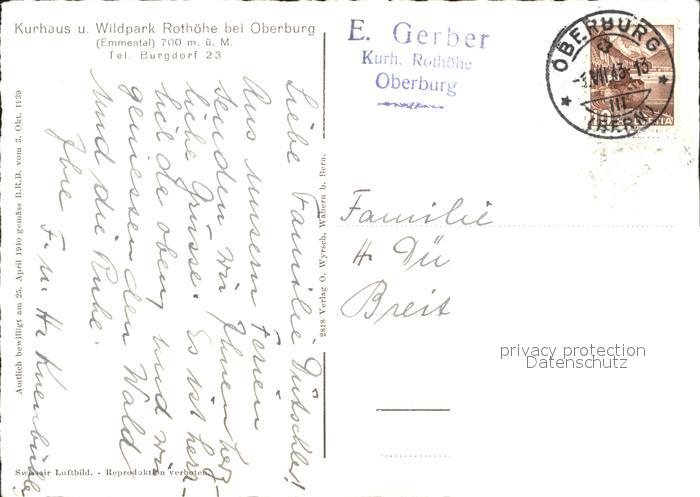 Kurhaus u. Wildpark Rothöhe bei Oberburg
(Emmental) 700 m. ü. M.
Tel. Burgdorf 23
E. Gerber
Kurh. Rothöhe
Oberburg
OBERBURG
(BERN)
III
Liebe Familie Dütschler!
Aus unsern Ferien
senden wir Ihnen herz-
liche Grüsse. Es ist herr-
hilde oben, und wir
geniessen den Wald
und die Ruhe.
Ihre
F. u. H.
Familie
H Dü
Breit
Amtlich bewilligt am 25. April 1940 gemäss B.R.B. vom 3. Okt. 1939
2818 Verlag O. Wyrsch, Wabern b. Bern.
Swissair Luftbild. - Reproduktion verboten.
privacy protection
Datenschutz